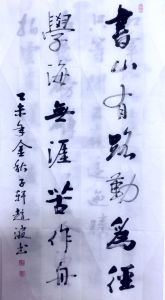 書山有路勤為徑
學海無涯苦作舟
乙未年金秋子軒趙波書